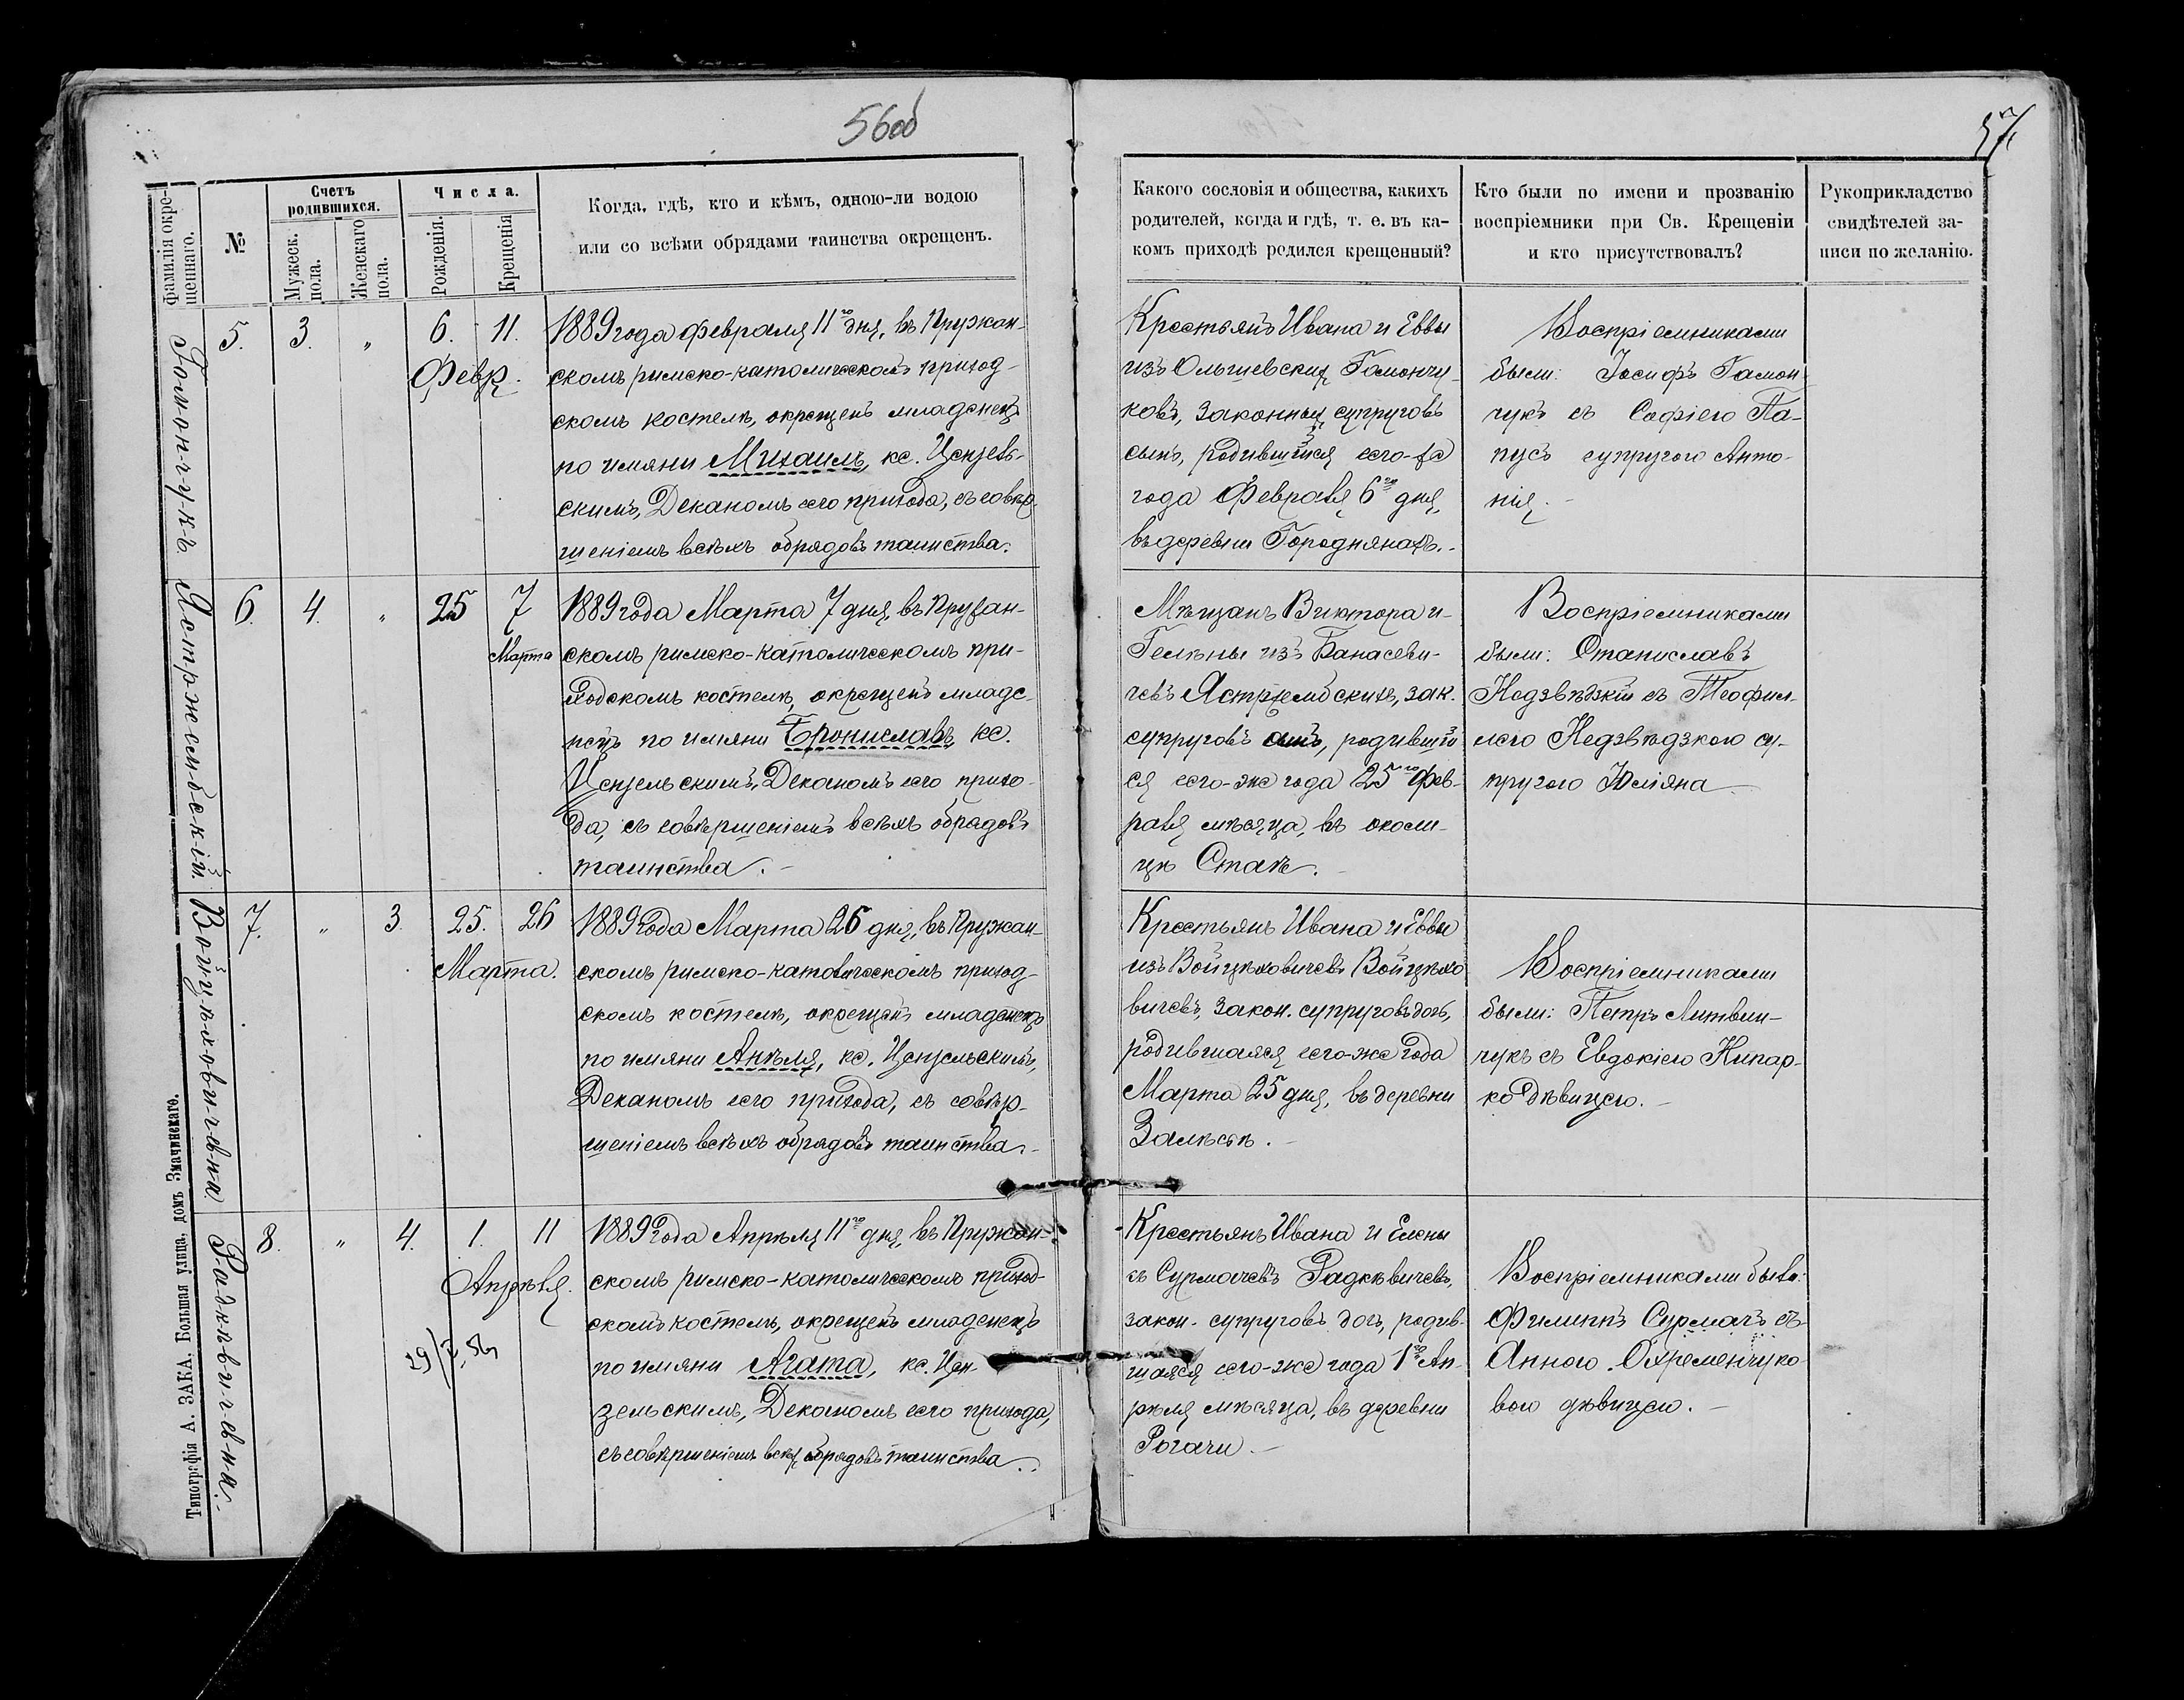 56об
57
Фамилія окре-
щеннаго.
№
Счетъ
родившихся.
Мужеск.
пола.
Женскаго
пола.
Числа.
Рожденія.
Крещенія
Когда, гдѣ, кто и кѣмъ, одною-ли водою
или со всѣми обрядами таинства окрещенъ.
Какого сословія и общества, какихъ
родителей, когда и гдѣ, т. е. въ ка-
комъ приходѣ родился крещенный?
Кто были по имени и прозванію
воспріемники при Св. Крещеніи
и кто присутствовалъ?
Рукоприкладство
свидѣтелей за-
писи по желанію.
Гомончукъ
5. 3. „ 6. 11.
Февр.
1889 года Февраля 11го дня, въ Пружан-
скомъ римско-католическомъ приход-
скомъ костелѣ, окрещенъ младенецъ
по имяни Михаилъ, кс. Цензель-
скимъ, Деканомъ сего прихода, съ совер-
шеніемъ всѣхъ обрядовъ таинства.
Крестьянъ Ивана и Еввы
изъ Ольшевскихъ Гамончу-
ковъ, законныхъ супруговъ
сынъ, родившійся сего-же
года Февраля 6го дня,
въ деревни Городнянахъ.
Воспріемниками
были: Іосифъ Гамон-
чукъ съ Софіею Па-
пусъ супругою Анто-
нія.
Ястржембскій.
6. 4. „ 25 7
Марта
1889 года Марта 7 дня, въ Пружан-
скомъ римско-католическомъ при-
ходскомъ костелѣ, окрещенъ младе-
нецъ по имяни Брониславъ, кс.
Цензельскимъ, Деканомъ сего прихо-
да, съ совершеніемъ всѣхъ обрядовъ
таинства.
Мѣщанъ Виктора и
Гелены изъ Банасеви-
чевъ Ястржембскихъ, зак.
супруговъ сынъ, родившій
ся сего-же года 25го Фев-
раля мѣсяца, въ околи-
цѣ Стакъ.
Воспріемниками
были: Станиславъ
Недзвѣдзкій съ Теофи-
лею Недзвѣдзкою су-
пругою Юліяна
Войцѣховичевна
7. „ 3. 25. 26
Марта.
1889 года Марта 26 дня, въ Пружан-
скомъ римско-католическомъ приход-
скомъ костелѣ, окрещенъ младенецъ
по имяни Анѣля, кс. Цензельскимъ,
Деканомъ сего прихода, съ совер-
шеніемъ всѣхъ обрядовъ таинства.
Крестьянъ Ивана и Еввы
изъ Войцѣховичевъ Войцѣхо
вичевъ, закон. супруговъ дочь,
родившаяся сего-же года
Марта 25 дня, въ деревни
Залѣсѣ.
Воспріемниками
были: Петръ Литвин-
чукъ съ Евдокіею Нипар-
ко дѣвицею.
Радкѣвичевна.
8. „ 4. 1. 11
Апрѣля.
1889 года Апрѣля 11го дня, въ Пружан-
скомъ римско-католическомъ приход-
скомъ костелѣ, окрещенъ младенецъ
по имяни Агата, кс. Цен-
зельскимъ, Деканомъ сего прихода,
съ совершеніемъ всѣхъ обрядовъ таинства.
Крестьянъ Ивана и Елены
съ Сурмачевъ Радкѣвичевъ,
закон. супруговъ дочь, родив-
шаяся сего-же года 1го Ап-
рѣля мѣсяца, въ деревни
Рогачи.
Воспріемниками были:
Филиппъ Сурмачъ съ
Анною Охременчуко-
вою дѣвицею.
Типографія А. ЗАКА, Большая улица, домъ Значинскаго.